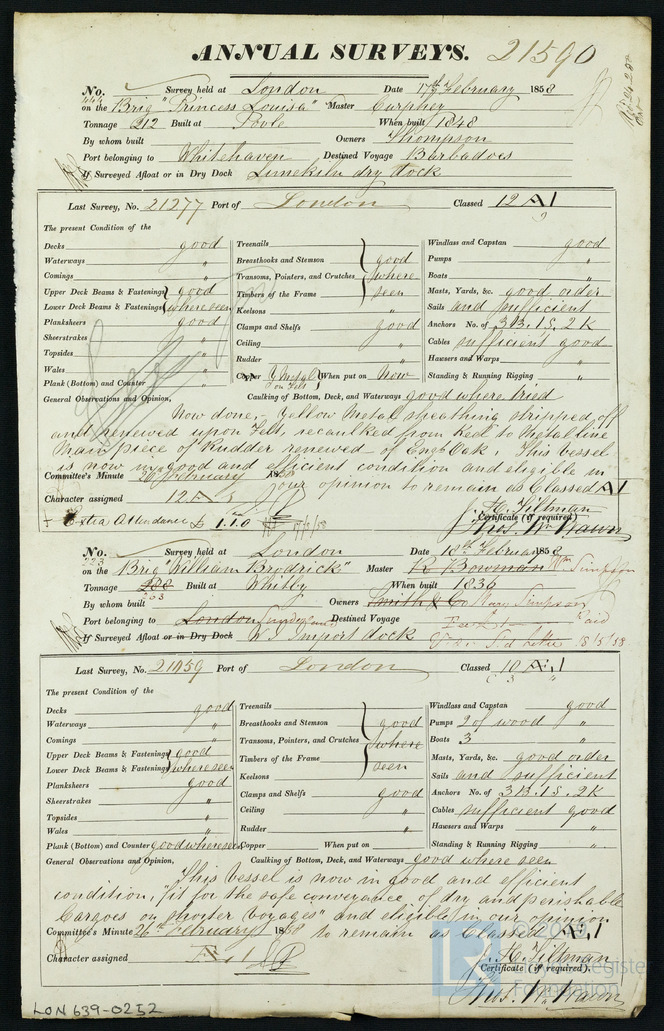 ANNUAL SURVEYS. 21590
No. 444 Survey held at London Date 17th February 1858
on the Brig "Princess Louisa" Master Curphey
Tonnage 212 Built at Poole When built 1848
By whom built Owners Thompson
Port belonging to Whitehaven Destined Voyage Barbadoes
If Surveyed Afloat or in Dry Dock Limekiln dry dock
Last Survey, No. 21277 Port of London Classed 12 A1
The present Condition of the
Decks good
Waterways "
Comings "
Upper Deck Beams & Fastenings good
Lower Deck Beams & Fastenings where seen
Planksheers good
Sheerstrakes "
Topsides "
Wales "
Plank (Bottom) and Counter "
Treenails
Breasthooks and Stemson good
Transoms, Pointers, and Crutches where
Timbers of the Frame seen
Keelsons
Clamps and Shelfs good
Ceiling "
Rudder "
Copper Y Metal on Felt When put on Now
Windlass and Capstan good
Pumps "
Boats "
Masts, Yards, &c. good order
Sails and sufficient
Anchors No. of 3B. 1S. 2K
Cables sufficient good
Hawsers and Warps "
Standing & Running Rigging "
General Observations and Opinion, Caulking of Bottom, Deck, and Waterways good where tried
Now done,- Yellow Metal sheathing stripped off
and renewed upon Felt, recaulked from Keel to Metal line
Main piece of Rudder renewed of Engh Oak. This vessel
is now in good and efficient condition and eligible in
Committee's Minute February 185 our opinion to remain as Classed A1
Character assigned 12 A J. H. Tiltman
Certificate (if required)
+ Extra Attendance £1.1.0 17/5/58 Thos. Wm Wawn
No. 223 Survey held at London Date 18th February 1858
on the Brig "William Brodrick" Master R Bowman Wm Simpson
Tonnage 288 263 Built at Whitby When built 1836
By whom built Owners Smith & Co Mary Simpson
Port belonging to London Sunderland Destined Voyage
If Surveyed Afloat or in Dry Dock W I Import dock 18/5/58
Last Survey, No. 21459 Port of London Classed 10 Æ1
The present Condition of the
Decks good
Waterways "
Comings "
Upper Deck Beams & Fastenings good
Lower Deck Beams & Fastenings where seen
Planksheers good
Sheerstrakes "
Topsides "
Wales "
Plank (Bottom) and Counter good where seen
Treenails
Breasthooks and Stemson good
Transoms, Pointers, and Crutches where
Timbers of the Frame seen
Keelsons
Clamps and Shelfs good
Ceiling "
Rudder "
Copper When put on
Windlass and Capstan good
Pumps 2 of wood "
Boats 3 "
Masts, Yards, &c. good order
Sails and sufficient
Anchors No. of 3B. 1S. 2K
Cables sufficient good
Hawsers and Warps "
Standing & Running Rigging "
General Observations and Opinion, Caulking of Bottom, Deck, and Waterways good where seen
This vessel is now in good and efficient
condition, "fit for the safe conveyance of dry and perishable
Cargoes on shorter Voyages" and eligible in our opinion
Committee's Minute 26th February 1858 to remain as Classed Æ1
Character assigned Æ 1 J. H. Tiltman
Certificate (if required).
Thos. Wm Wawn
LON 639-0252
Foundation